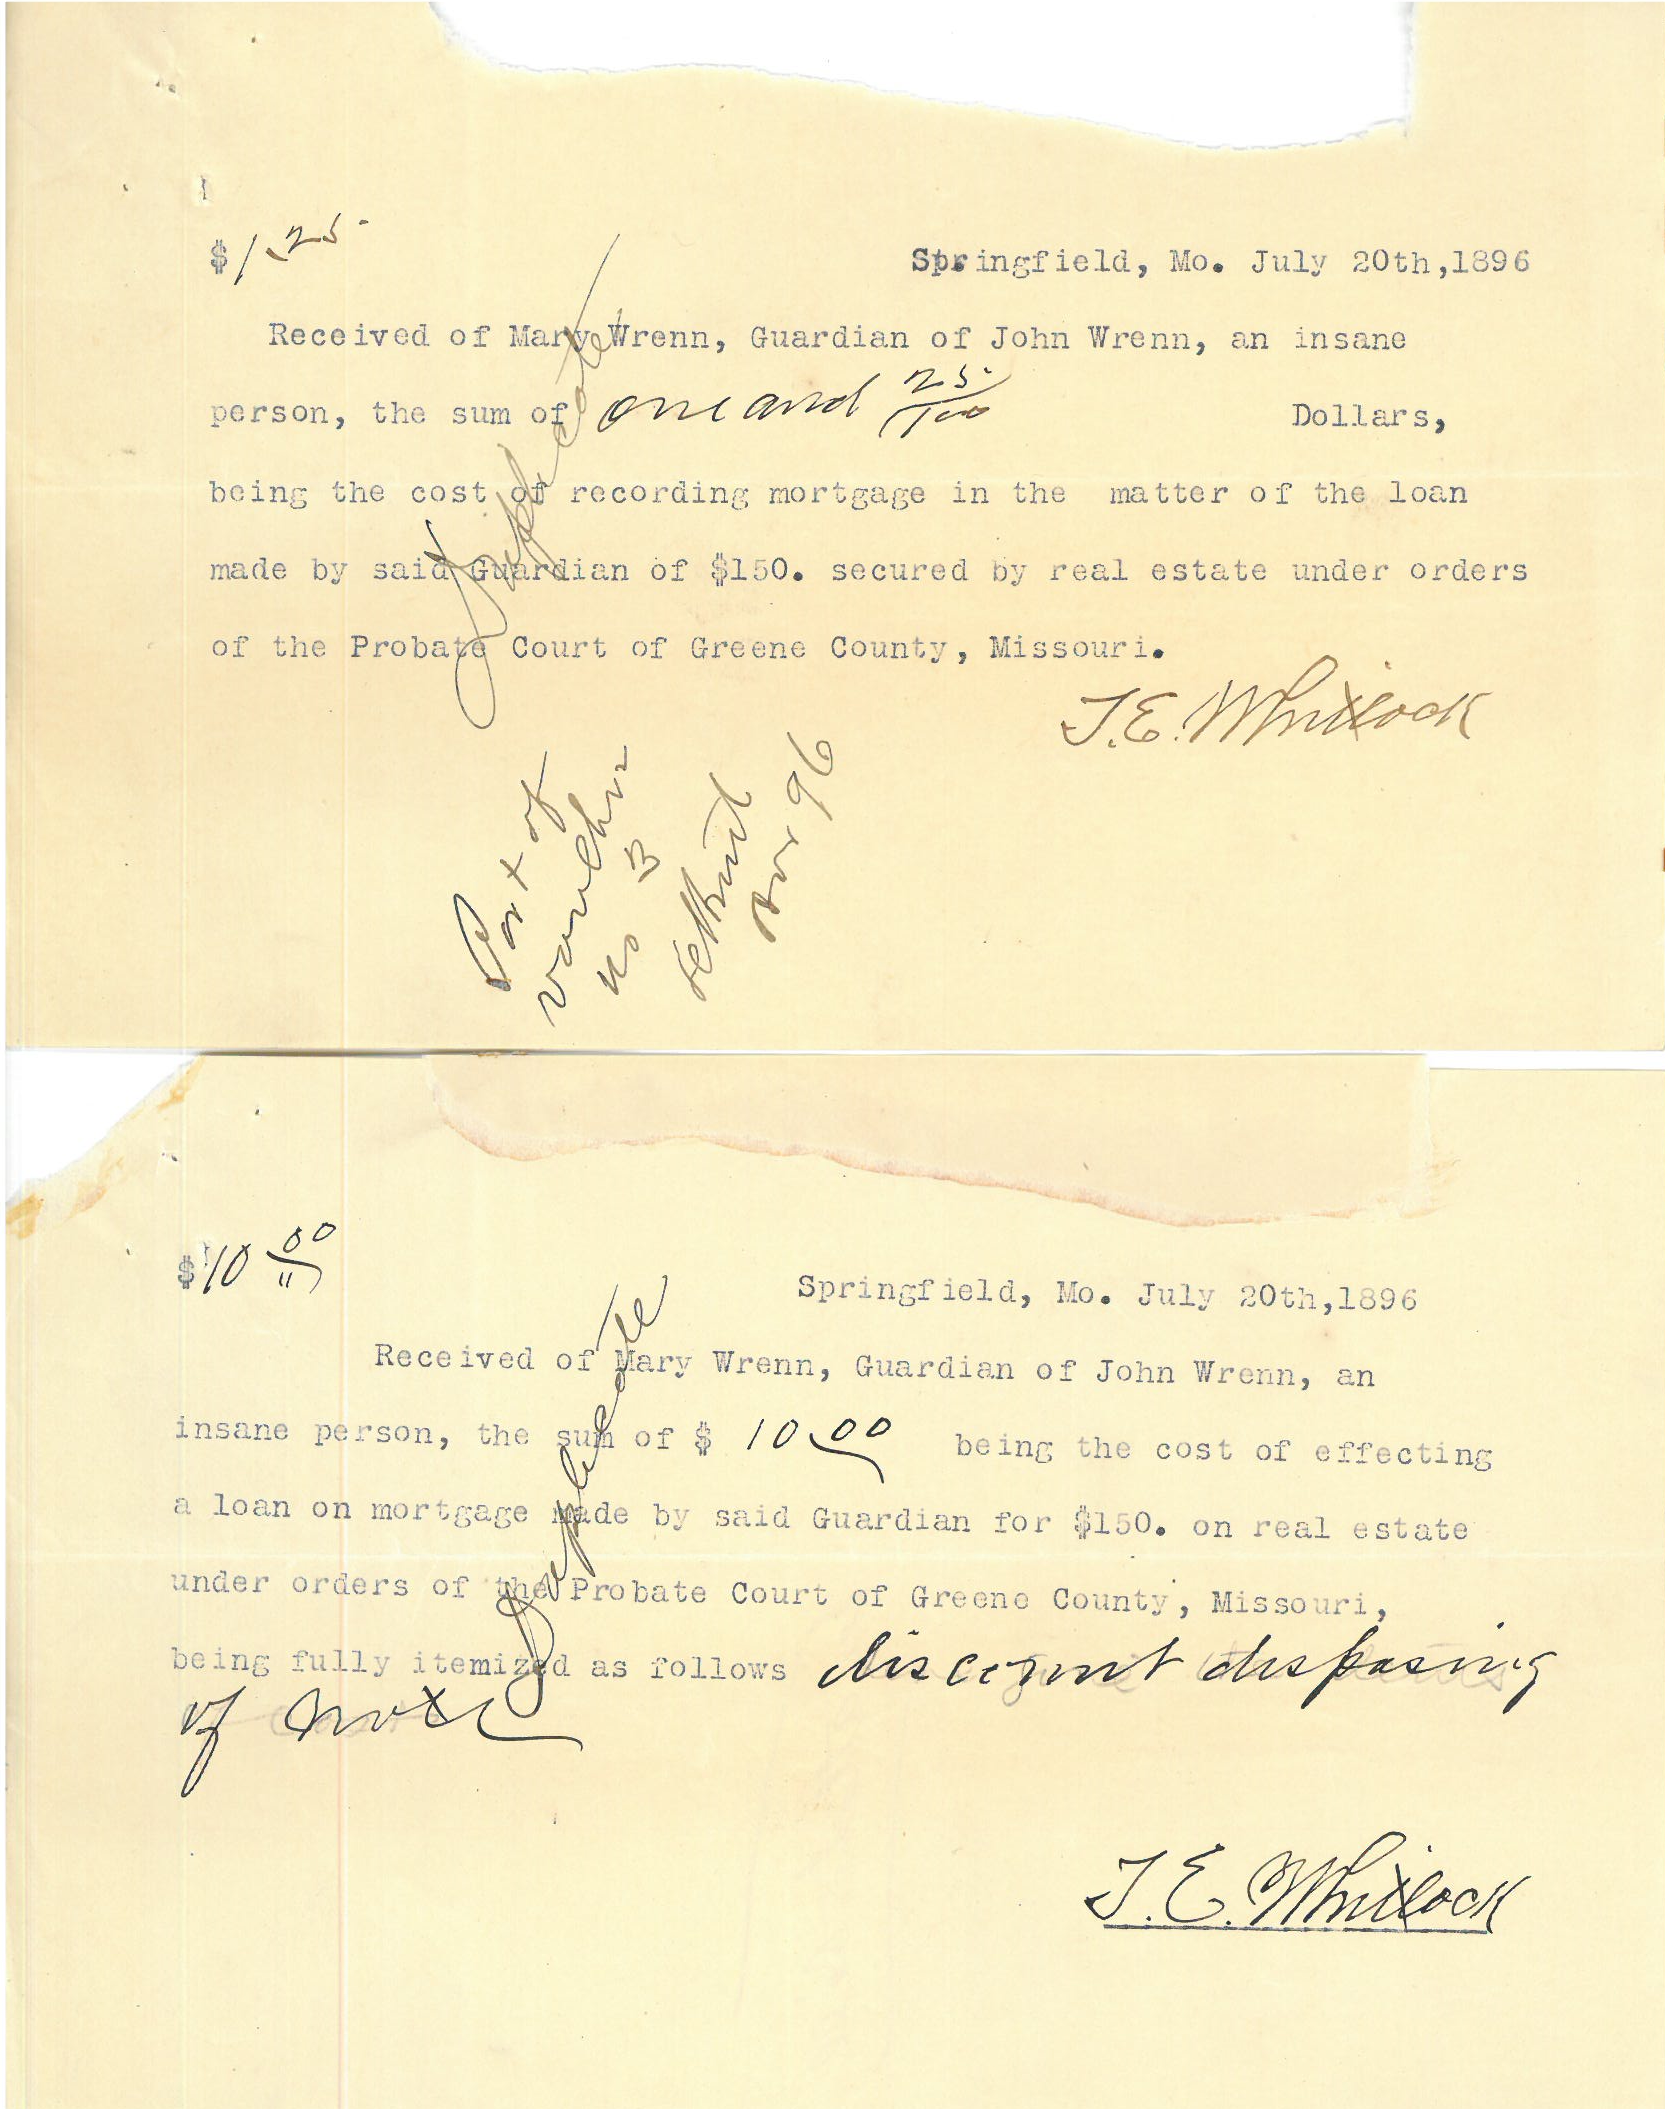 $1.25
Springfield, Mo. July 20th,1896
Received of Mary Wrenn, Guardian of John Wrenn, an insane
person, the sum of one and 25/100 Dollars,
being the cost of recording mortgage in the matter of the loan
made by said Guardian of $150. secured by real estate under orders
of the Probate Court of Greene County, Missouri.
Duplicate
T.E. Whitlock
Part of
voucher
no 3
Setlment
Nov 96
$10 00
Springfield, Mo. July 20th,1896
Received of Mary Wrenn, Guardian of John Wrenn, an
insane person, the sum of $ 10 00 being the cost of effecting
a loan on mortgage made by said Guardian for $150. on real estate
under orders of the Probate Court of Greene County, Missouri,
being fully itemized as follows discount disposing
of note
Duplicate
T.E. Whitlock